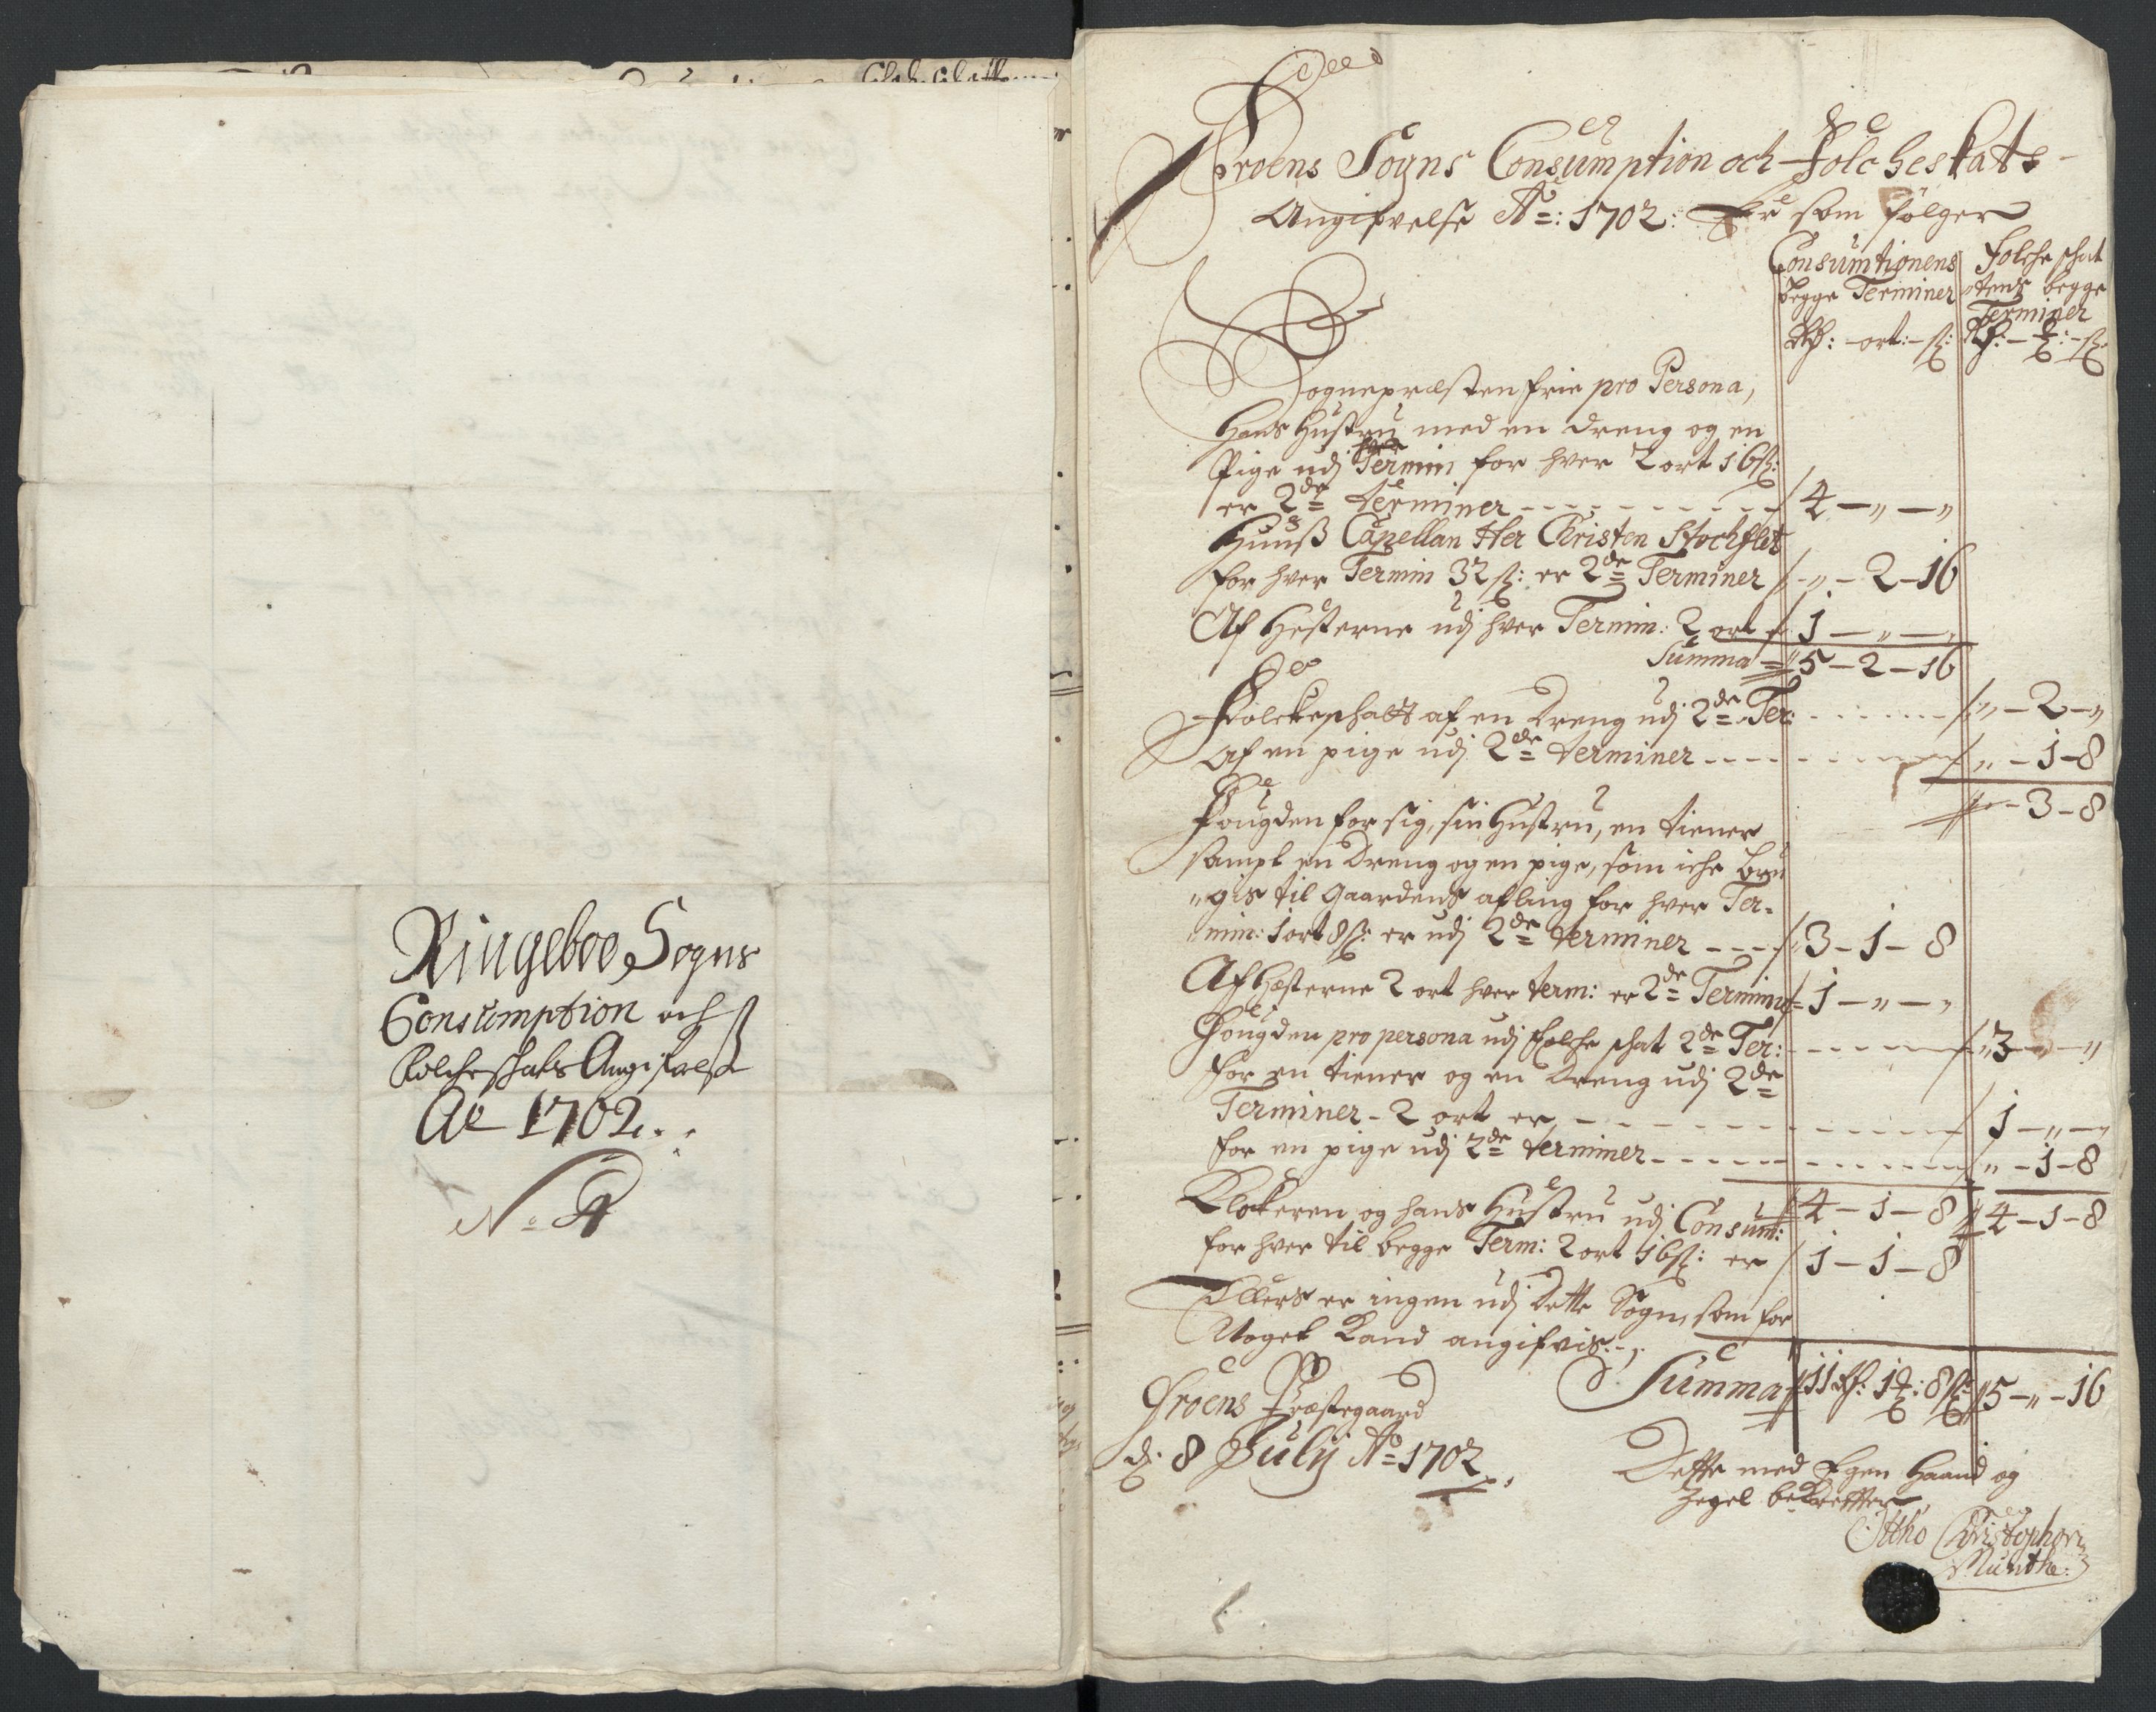 Ringeboe Sogns
Consumption och
Folcheskats Angifvelse
Ao 1702.
No 4
Froens Sogns Consumption och Folcheskats
Angifvelse Ao: 1702: Er som følger
Consumtionens
begge Terminer
Rd: - ort: - ß:
Folche schat
tens begge
Terminer
Rd: - ort: - ß:
Sognepræsten frie pro Persona,
Hans Hustru med en dreng og en
Pige udj hver Termin for hver 2 ort 16 ß:
er 2de terminer - - - - 4 - „ - „
Huuß Capellan Her Christen Stochflet
for hver Termin 32 ß: er 2de Terminer „ - 2 - 16
Af Hesterne udj hver Termin: 2 ort 1 - „ - „
Summa 5 - 2 - 16
Folckeschatt af en Dreng udj 2de Ter: - - - „ - 2 - „
Af en pige udj 2de terminer - - - - „ - 1 - 8
„ - 3 - 8
Fougden for sig, sin Hustru, en tiener
sampt en Dreng og en pige, som iche bru
„gis til Gaardens afling for hver Ter-
„min: 1 ort 8 ß: er udj 2de terminer - - - 3 - 1 - 8
Af Hæsterne 2 ort hver term: er 2de Terminer 1 - „ - „
Fougden pro persona udj folche schat 2de Ter: - - - 3 - „ - „
for en tiener og en Dreng udj 2de
Terminer - 2 ort er - - - - 1 - „ - „
for en pige udj 2de terminer - - - - „ - 1 - 8
4 - 1 - 8 4 - 1 - 8
Klokeren og hans Hustru udj Consum:
for hver til begge Term: 2 ort 16 ß: er 1 - 1 - 8
Ellers er ingen udj dette Sogn, som for
Noget Kand angifvis.
Summa 11 Rd: 1 ort: 8 ß 5 - „ - 16
Froens Præstegaard
d. 8 Julij Ao 1702
Dette med Egen Haand og
Zegel bekreffter
Ottho Christophers
Munthe.